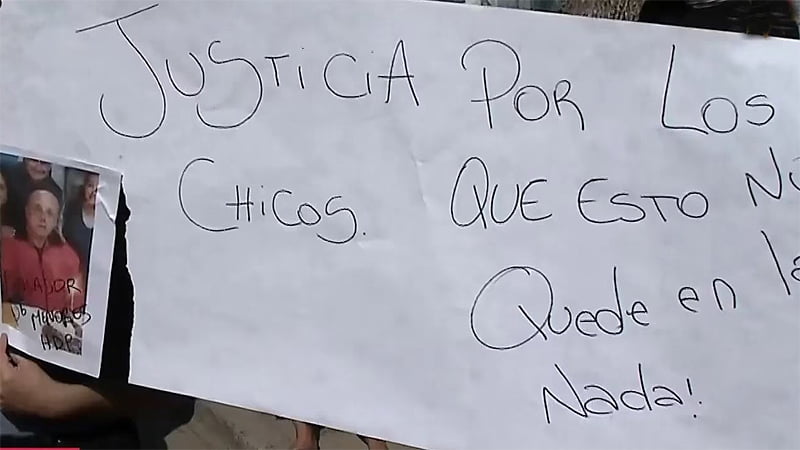 JUSTICIA POR LOS
CHICOS. QUE ESTO
Quede en la
Nada!
DE MENORES
HDP